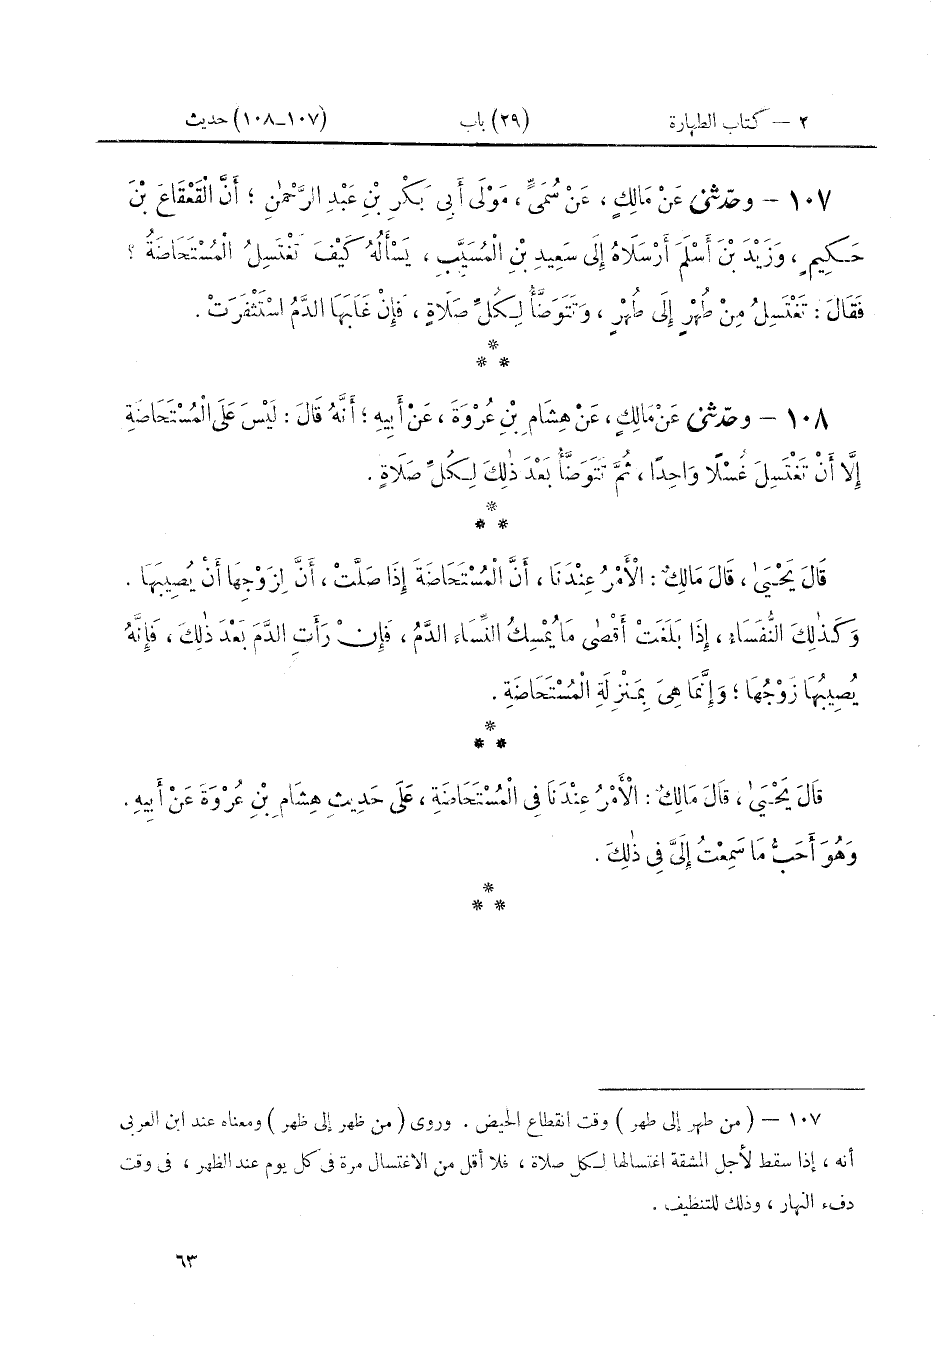 ٢ — كتاب الطهارة (٢٩) باب (١٠٧-١٠٨) حديث
١٠٧ — وحدّثني عَنْ مَالِكٍ ، عَنْ سُمَيٍّ ، مَوْلَى أَبِي بَكْرِ بْنِ عَبْدِ الرَّحْمٰنِ ؛ أَنَّ الْقَعْقَاعَ بْنَ
حَكِيمٍ ، وَزَيْدَ بْنَ أَسْلَمَ أَرْسَلَاهُ إِلَى سَعِيدِ بْنِ الْمُسَيَّبِ ، يَسْأَلُهُ كَيْفَ تَغْتَسِلُ الْمُسْتَحَاضَةُ ؟
فَقَالَ : تَغْتَسِلُ مِنْ طُهْرٍ إِلَى طُهْرٍ ، وَتَتَوَضَّأُ لِكُلِّ صَلَاةٍ ، فَإِنْ غَلَبَهَا الدَّمُ اسْتَثْفَرَتْ .
*
* *
١٠٨ — وحدّثني عَنْ مَالِكٍ ، عَنْ هِشَامِ بْنِ عُرْوَةَ ، عَنْ أَبِيهِ ؛ أَنَّهُ قَالَ : لَيْسَ عَلَى الْمُسْتَحَاضَةِ
إِلَّا أَنْ تَغْتَسِلَ غُسْلًا وَاحِدًا ، ثُمَّ تَتَوَضَّأُ بَعْدَ ذٰلِكَ لِكُلِّ صَلَاةٍ .
*
* *
قَالَ يَحْيَىٰ ، قَالَ مَالِكٌ : الْأَمْرُ عِنْدَنَا ، أَنَّ الْمُسْتَحَاضَةَ إِذَا صَلَّتْ ، أَنَّ لِزَوْجِهَا أَنْ يُصِيبَهَا .
وَكَذٰلِكَ النُّفَسَاءُ ، إِذَا بَلَغَتْ أَقْصَى مَا يُمْسِكُ النِّسَاءَ الدَّمُ ، فَإِنْ رَأَتِ الدَّمَ بَعْدَ ذٰلِكَ ، فَإِنَّهُ
يُصِيبُهَا زَوْجُهَا ؛ وَإِنَّمَا هِيَ بِمَنْزِلَةِ الْمُسْتَحَاضَةِ .
*
* *
قَالَ يَحْيَىٰ ، قَالَ مَالِكٌ : الْأَمْرُ عِنْدَنَا فِي الْمُسْتَحَاضَةِ ، عَلَى حَدِيثِ هِشَامِ بْنِ عُرْوَةَ عَنْ أَبِيهِ .
وَهُوَ أَحَبُّ مَا سَمِعْتُ إِلَيَّ فِي ذٰلِكَ .
*
* *
١٠٧ — ( من طهر إلى طهر ) وقت انقطاع الحيض . وروى ( من ظهر إلى ظهر ) ومعناه عند ابن العربى
أنه ، إذا سقط لأجل المشقة اغتسالها لكل صلاة ، فلا أقل من الاغتسال مرة فى كل يوم عند الظهر ، فى وقت
دفء النهار ، وذلك للتنظيف .
٦٣